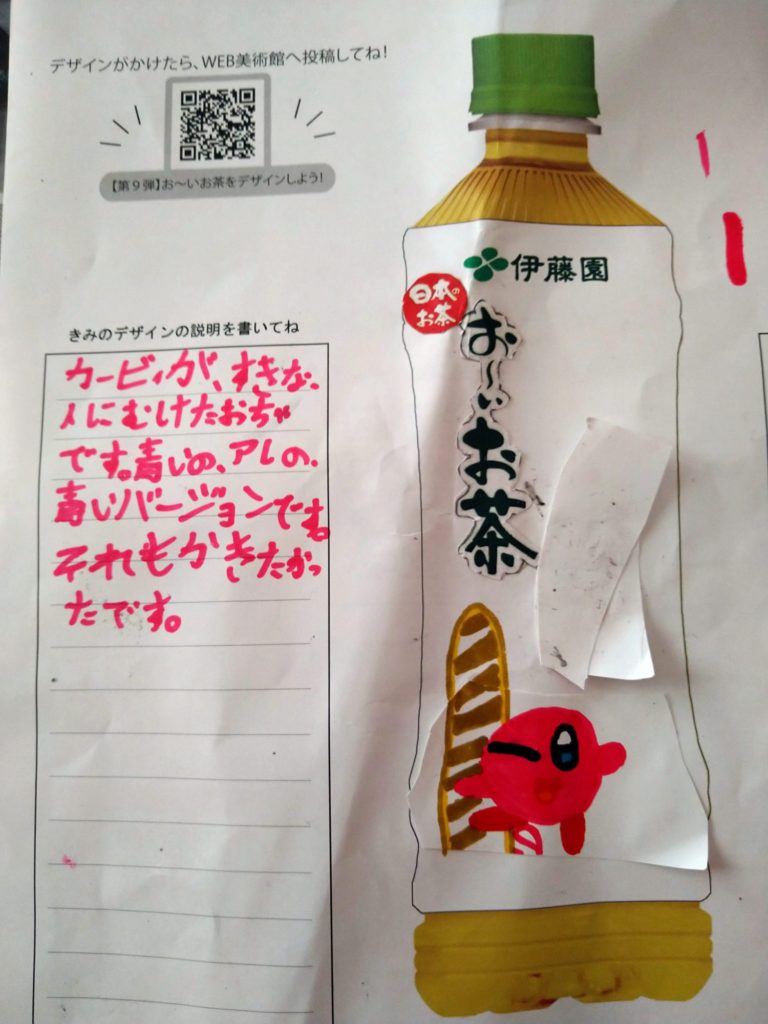 デザインがかけたら、WEB美術館へ投稿してね!
【第9弾】お～いお茶をデザインしよう!
きみのデザインの説明を書いてね
カービィが、すきな、
人にむけたおちゃ
です。青いの、アレの、
青いバージョンです。
それもかきたかっ
たです。
伊藤園
日本の
お茶
お～いお茶